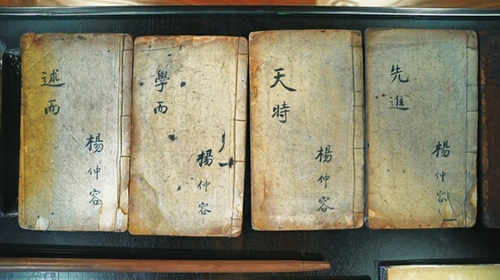 述而
楊仲容
學而
楊仲容
天時
楊仲容
先進
楊仲容